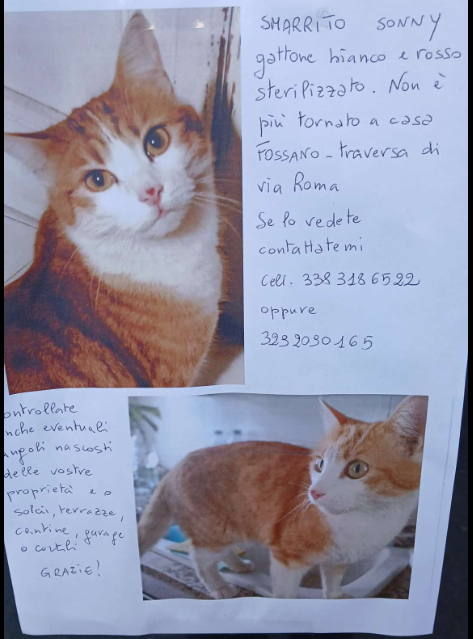 SMARRITO SONNY
gattone bianco e rosso
sterilizzato. Non è
più tornato a casa
FOSSANO - traversa di
via Roma
Se lo vedete
contattatemi
Cell. 338 318 6522
oppure
3292090165
ontrollate
nche eventuali
ngoli nascosti
delle vostre
proprietà e o
solai, terrazze,
cantine, garage
o cortili
GRAZIE!